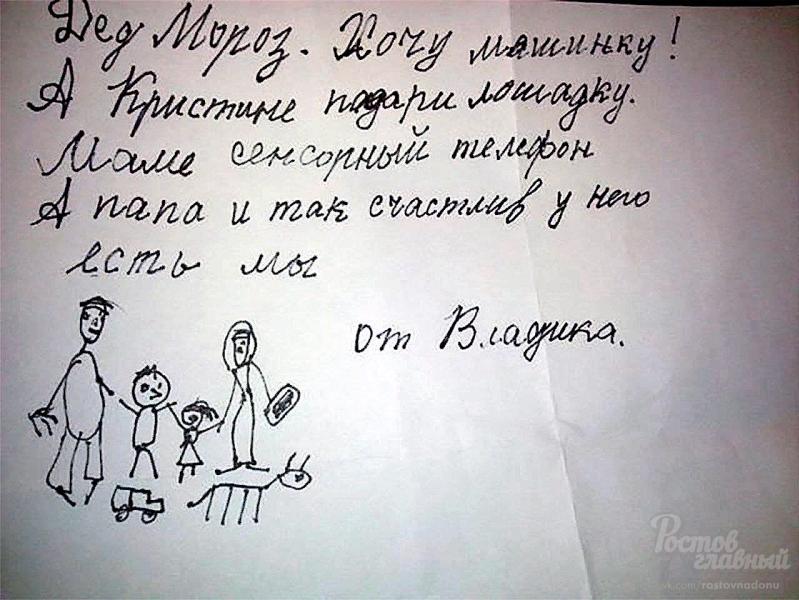 Дед Мороз. Хочу машинку!
А Кристине подари лошадку.
Маме сенсорный телефон
А папа и так счастлив у него
есть мы
от Владика.
Ростов
главный
vk.com/rostovnadonu